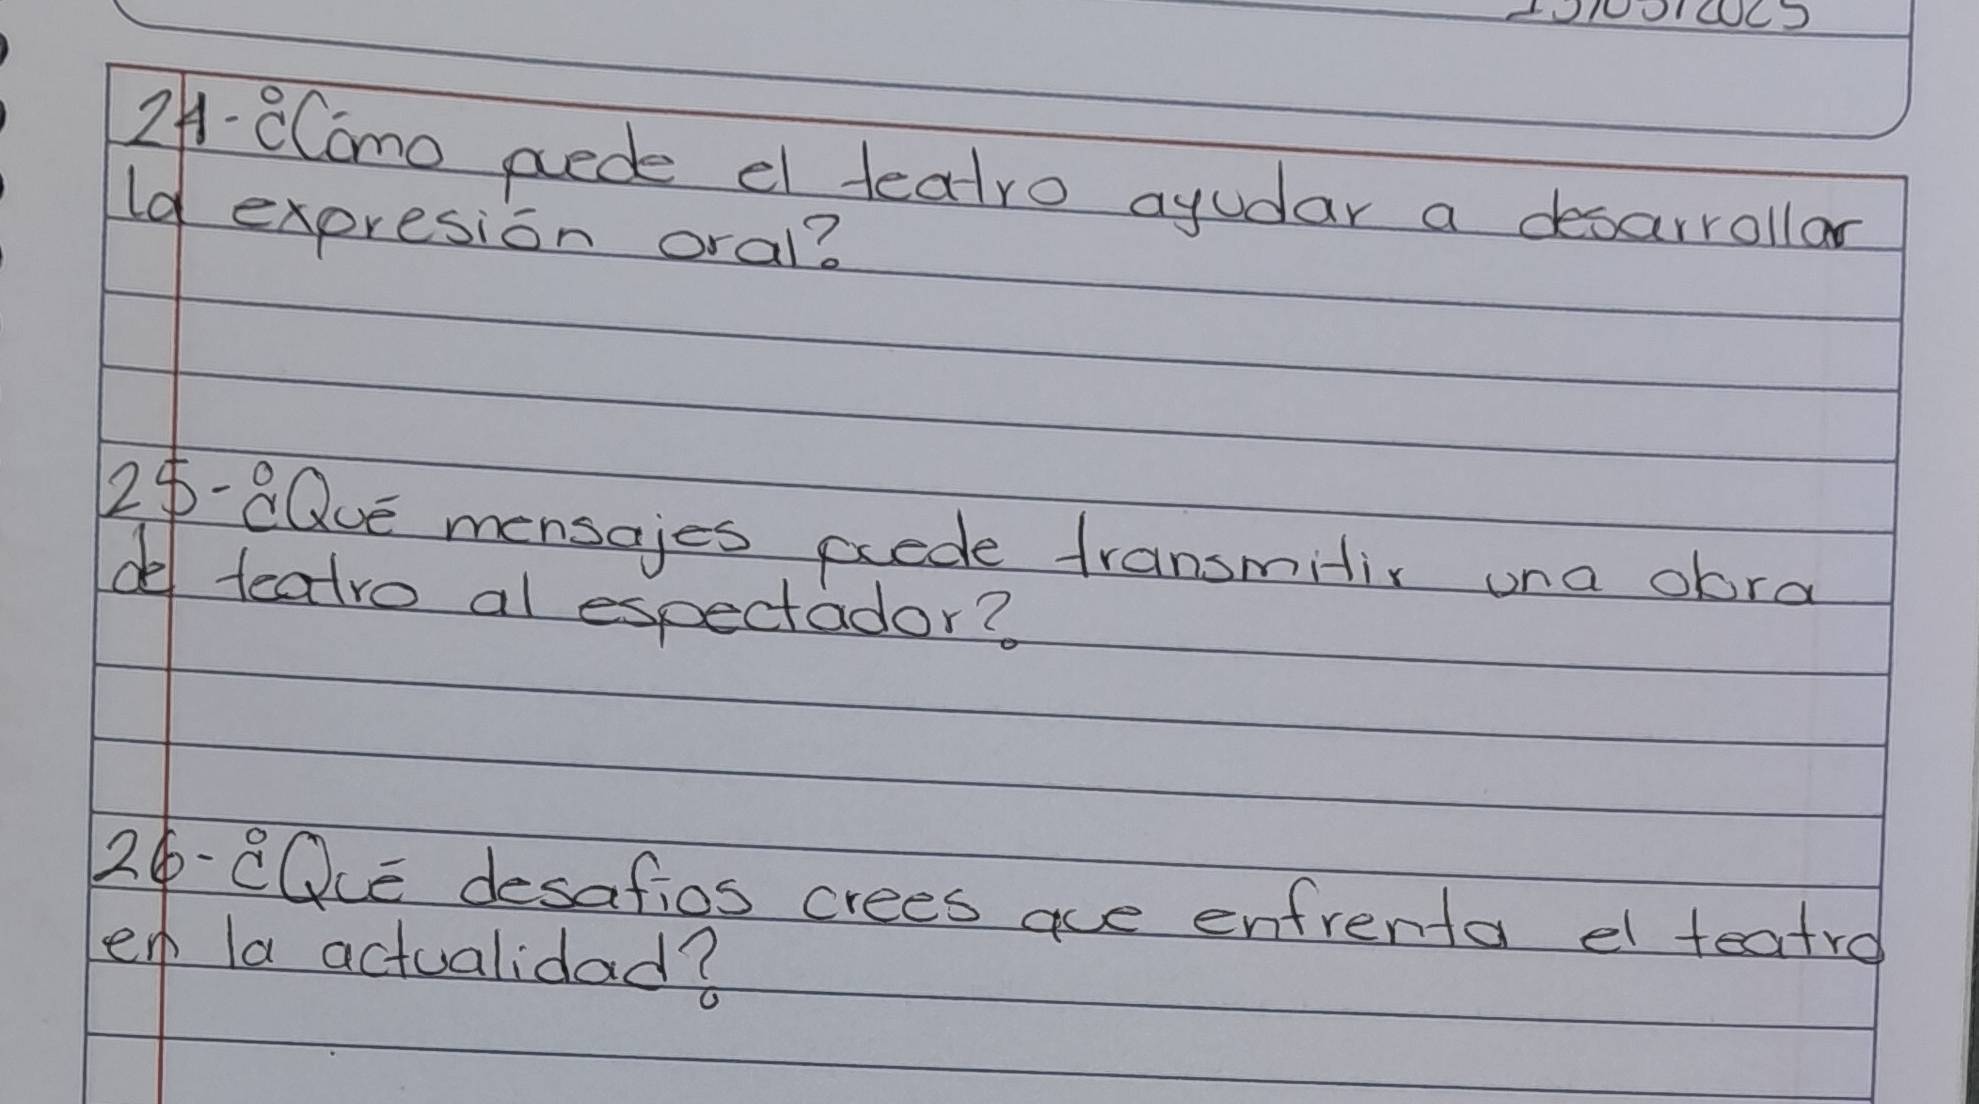 24-¿Cómo puede el teatro ayudar a desarrollar
la expresión oral?
25-¿Qué mensajes puede transmitir una obra
de teatro al espectador?
26-¿Qué desafios crees que enfrenta el teatro
en la actualidad?